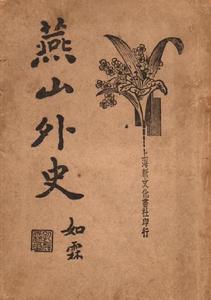 燕山外史
如霖
上海新文化書社印行